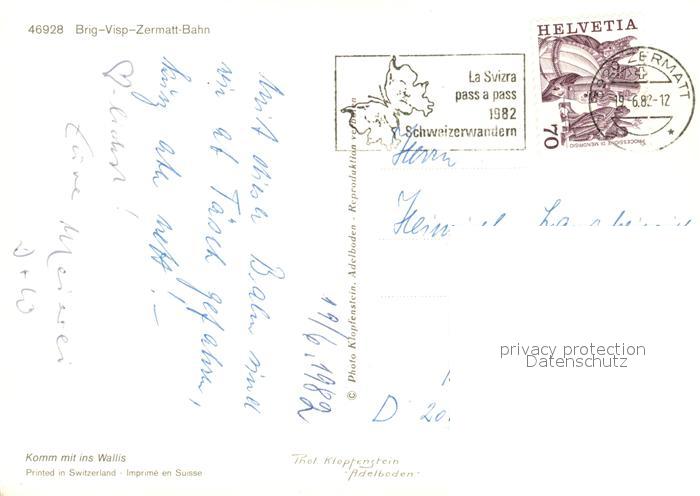 46928 Brig–Visp–Zermatt-Bahn
HELVETIA
70
PROCESSIONE DI MENDRISIO
ZERMATT
19-6.82-12
La Svizra
pass a pass
1982
Schweizerwandern
19/6.1982
Mit dieser Bahn sind
wir ab Täsch gefahren,
kurz aber nett! –
Eure
D + W
© Photo Klopfenstein, Adelboden - Reproduktion verboten
Herrn
D
privacy protection
Datenschutz
Komm mit ins Wallis
Printed in Switzerland - Imprimé en Suisse
Phot. Klopfenstein
Adelboden